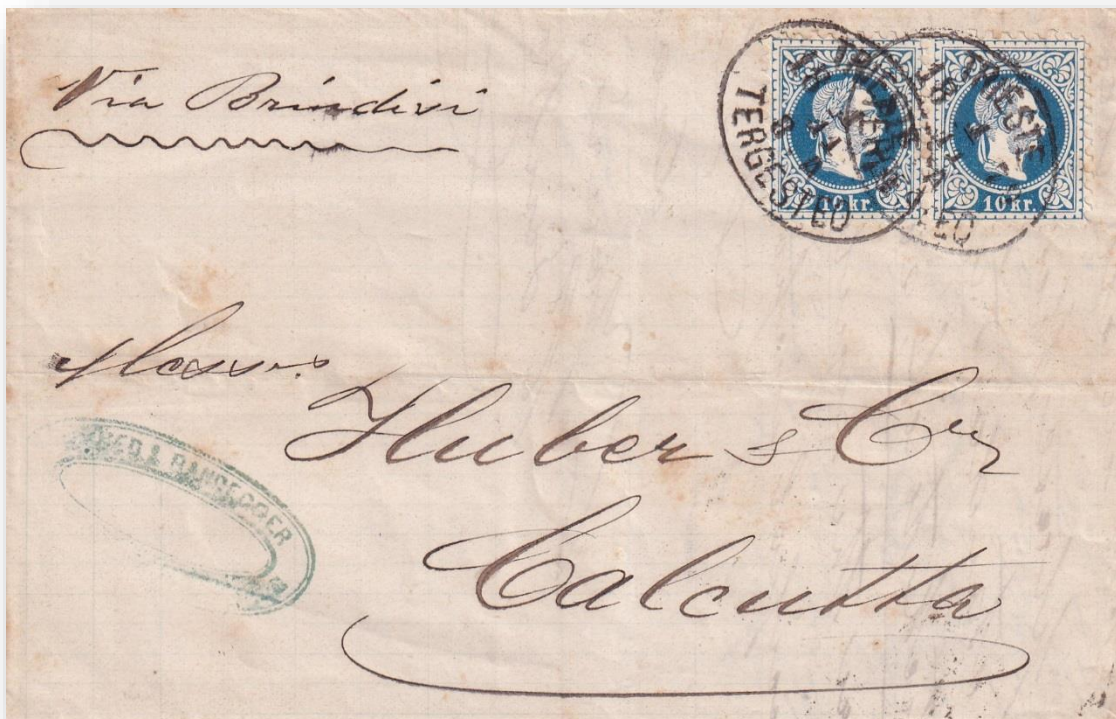 Via Brindisi
TRIESTE
TERGESTEO
TRIESTE
10 kr.
10 kr.
Messrs.
Huber & Co
Calcutta
& RANDEGGER